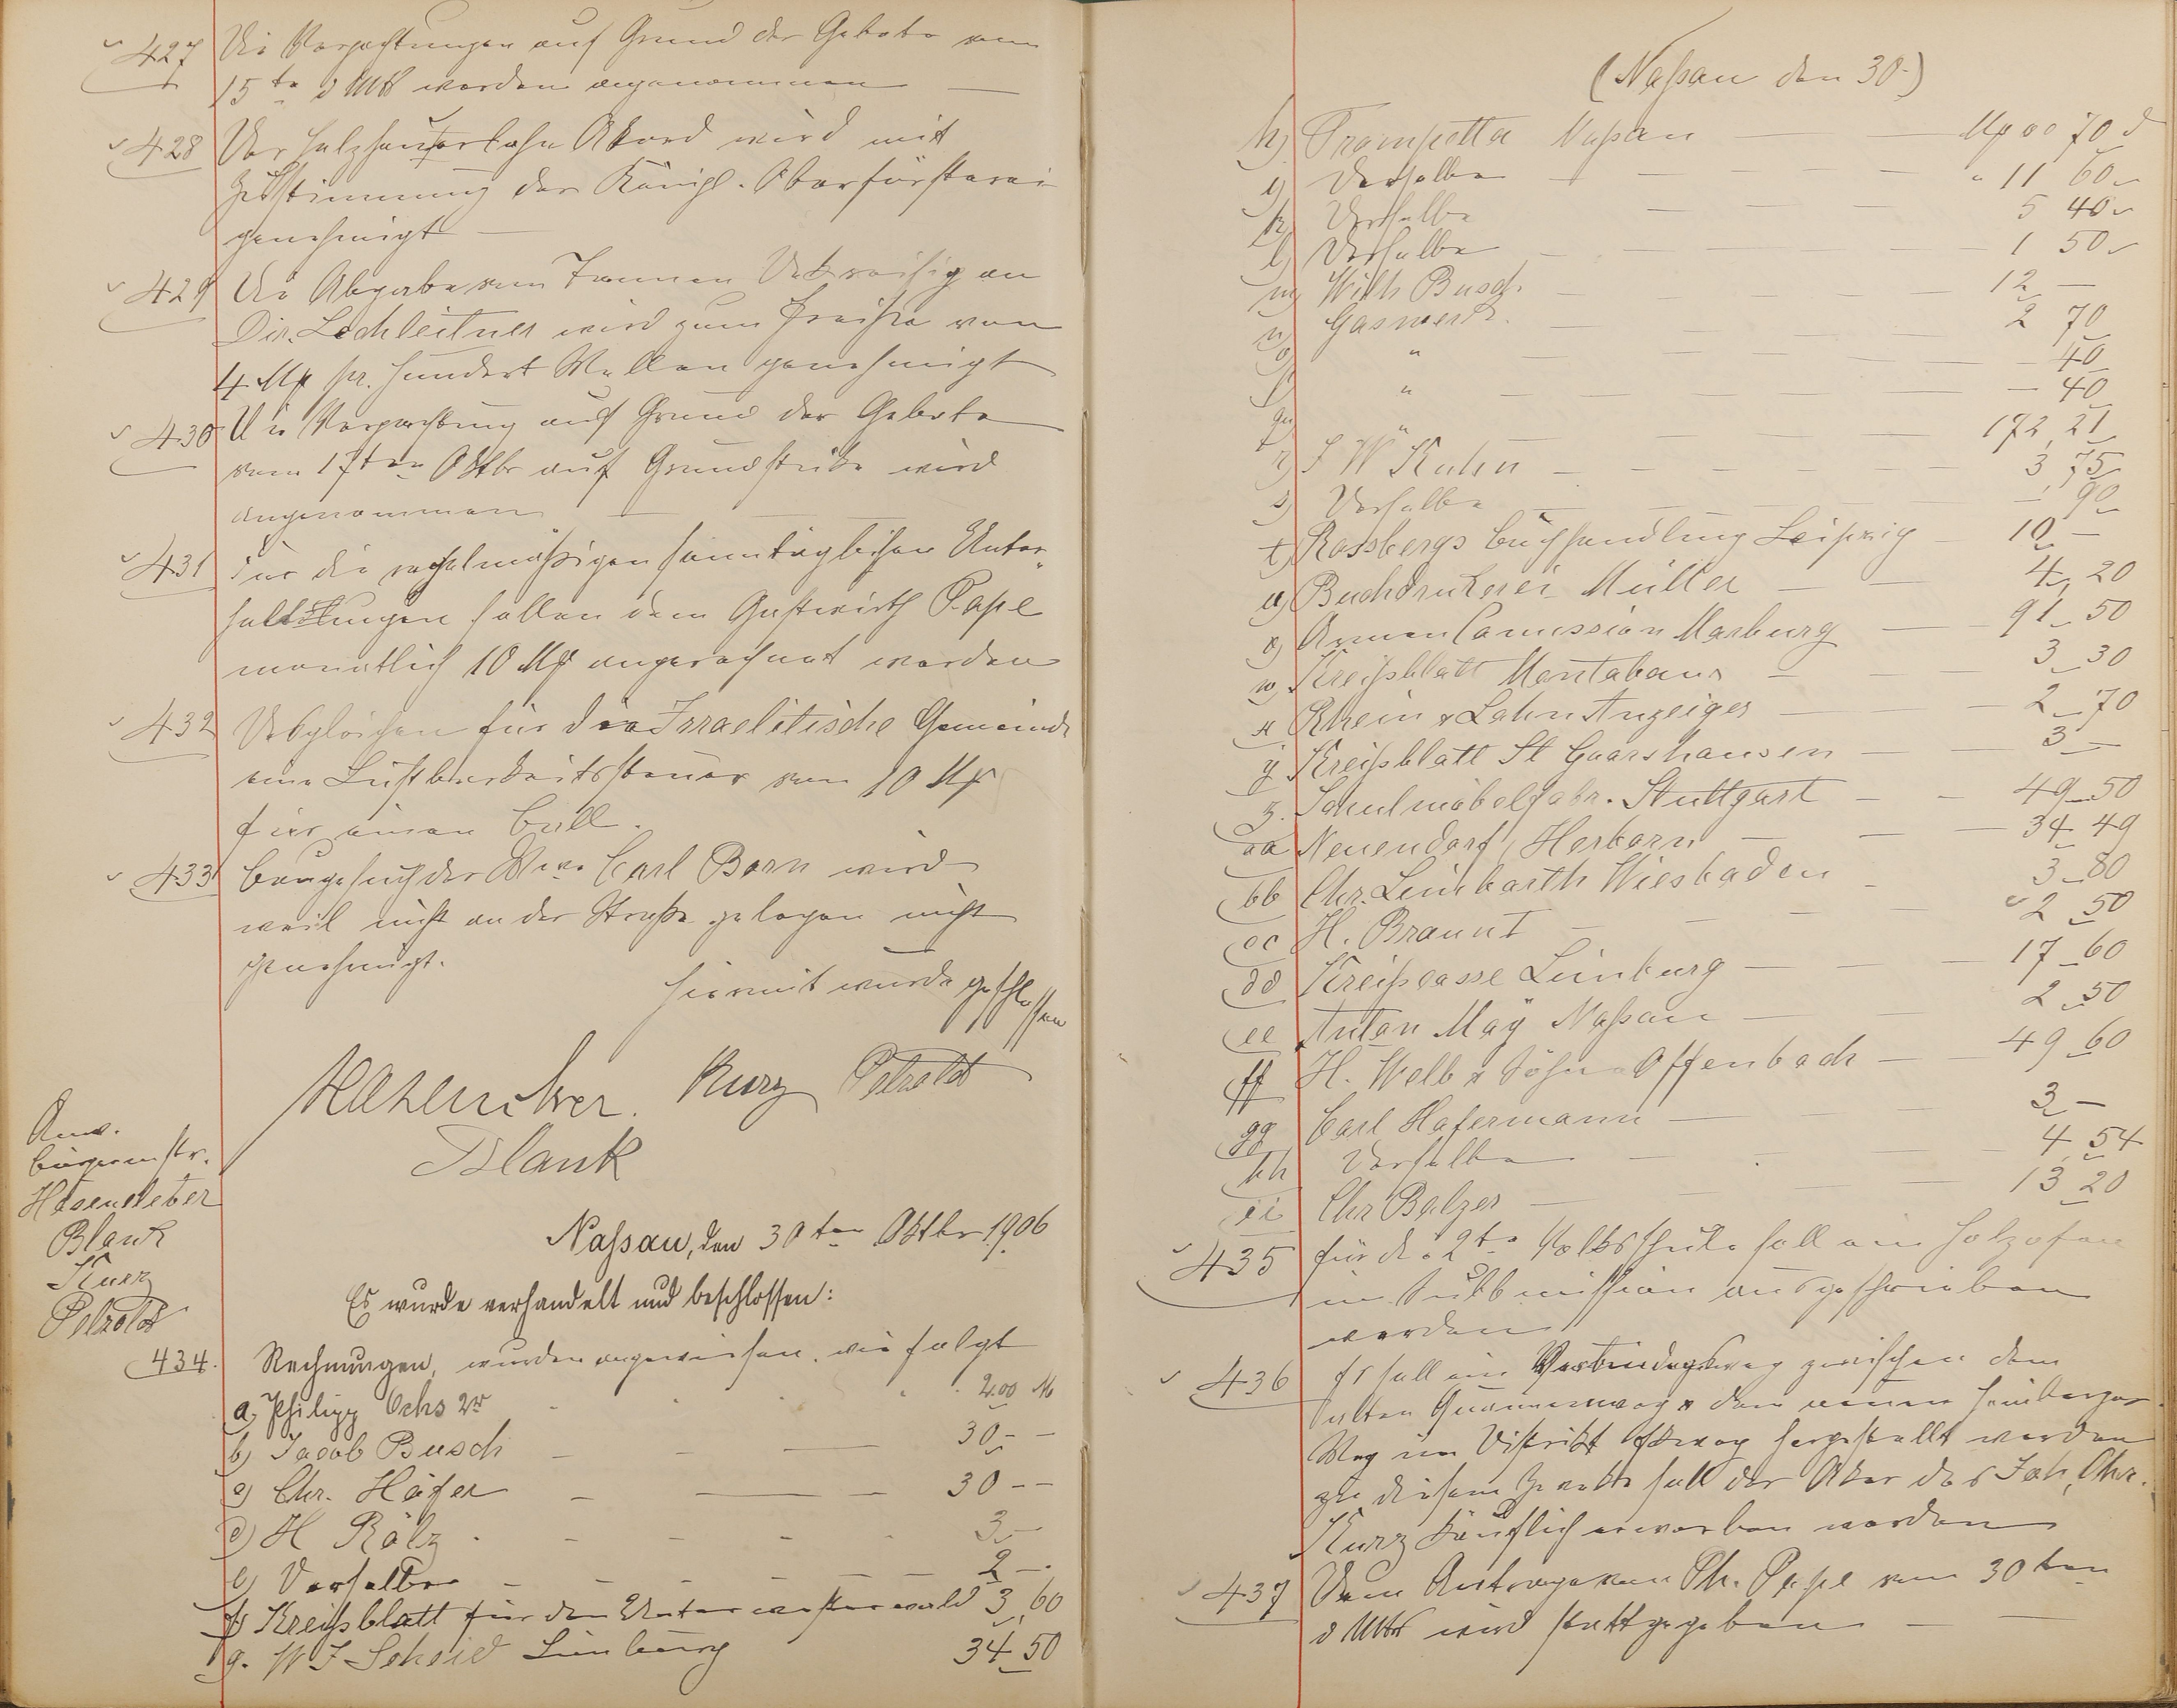 427 Die Verpachtungen auf Grund der Gebote vom
15ten d Mts werden angenommen
428 Der Holzhauerlohn Akord wird mit
Zustimmung der Königl. Oberförsterei
genehmigt
429 Die Abgabe von Tannen Dekreisig an
Dir. Lechleitner wird zum Preise von
4 Mk pr. hundert Wellen genehmigt
430 Die Verpachtung auf Grund der Gebote
vom 17ten Oktbr auf Grundstücke wird
angenommen
431 Für die regelmäßigen sonntäglichen Unter-
haltungen sollen dem Gastwirth Pape
monatlich 10 Mk angerechnet werden
432 Desgleichen für die Israelitische Gemeinde
eine Lustbarkeitssteuer von 10 Mk
für einen Ball.
433 Baugesuch der Wwe Carl Born wird
weil nicht an der Straße gelegen nicht
genehmigt.
Hiermit wurde geschlossen
Hasenclever. Kurz Petzoldt
Blank
Anw.
Bürgermstr.
Hasenclever
Blank
Kurz
Petzoldt
Naßau, den 30ten Oktbr 1906
Es wurde verhandelt und beschlossen:
434. Rechnungen, wurden angewiesen, wie folgt
a, Philipp Ochs 2r 200 M
b) Jacob Busch 30 –
c) Chr. Höfer 30 –
d) H Rölz 3 –
e) Derselbe 2 –
f) Kreisblatt für den Unterwesterwald 3,60
g. W J Scheid Limburg 34 50
(Naßau den 30.)
h) Trompetta Naßau Mk 00 70 d
i) Derselbe " 11 60
k) Derselbe 5 40
l) Derselbe 1 50
m) Wilh Busch. 12 –
n) Gaswerk. 2 70
o) " – 40
p) " – 40
q) " 172,21
r) J W Kuhn 3 75
s) Derselbe – 90
t) Rossbergs Buchhandlung Leipzig 10 –
u) Buchdrukerei Müller 4, 20
v) Armen Comission Marburg 91 50
w) Kreisblatt Montabaur 3 30
x Rhein & Lahn Anzeiger 2 70
y Kreisblatt St Goarshausen 3 –
z. Schulmöbelfabr. Stuttgart 49 50
aa Neuendorf, Herborn 34 49
bb Chr. Leimbarth Wiesbaden 3 80
cc H. Braunt 2 50
dd Kreiscasse Limburg 17 60
ee Anton May Naßau 2 50
ff H. Welb & Söhne Offenbach 49 60
gg Carl Hafermann 3 –
hh Derselbe 4, 54
ii Chr Balzer 13 20
435 für die 2te Volksschule soll ein Holzofen
in Submission ausgeschrieben
werden
436 Es soll ein Verbindungsweg zwischen dem
alten weg & dem neuen Hömberger
Weg im Distrikt hergestellt werden
zu diesem Zwecke soll der Aker des Joh, Chr.
Kurz käuflich erworben werden
437 Dem Antrage von Ph. Pape vom 30ten
d Mts wird stattgegeben